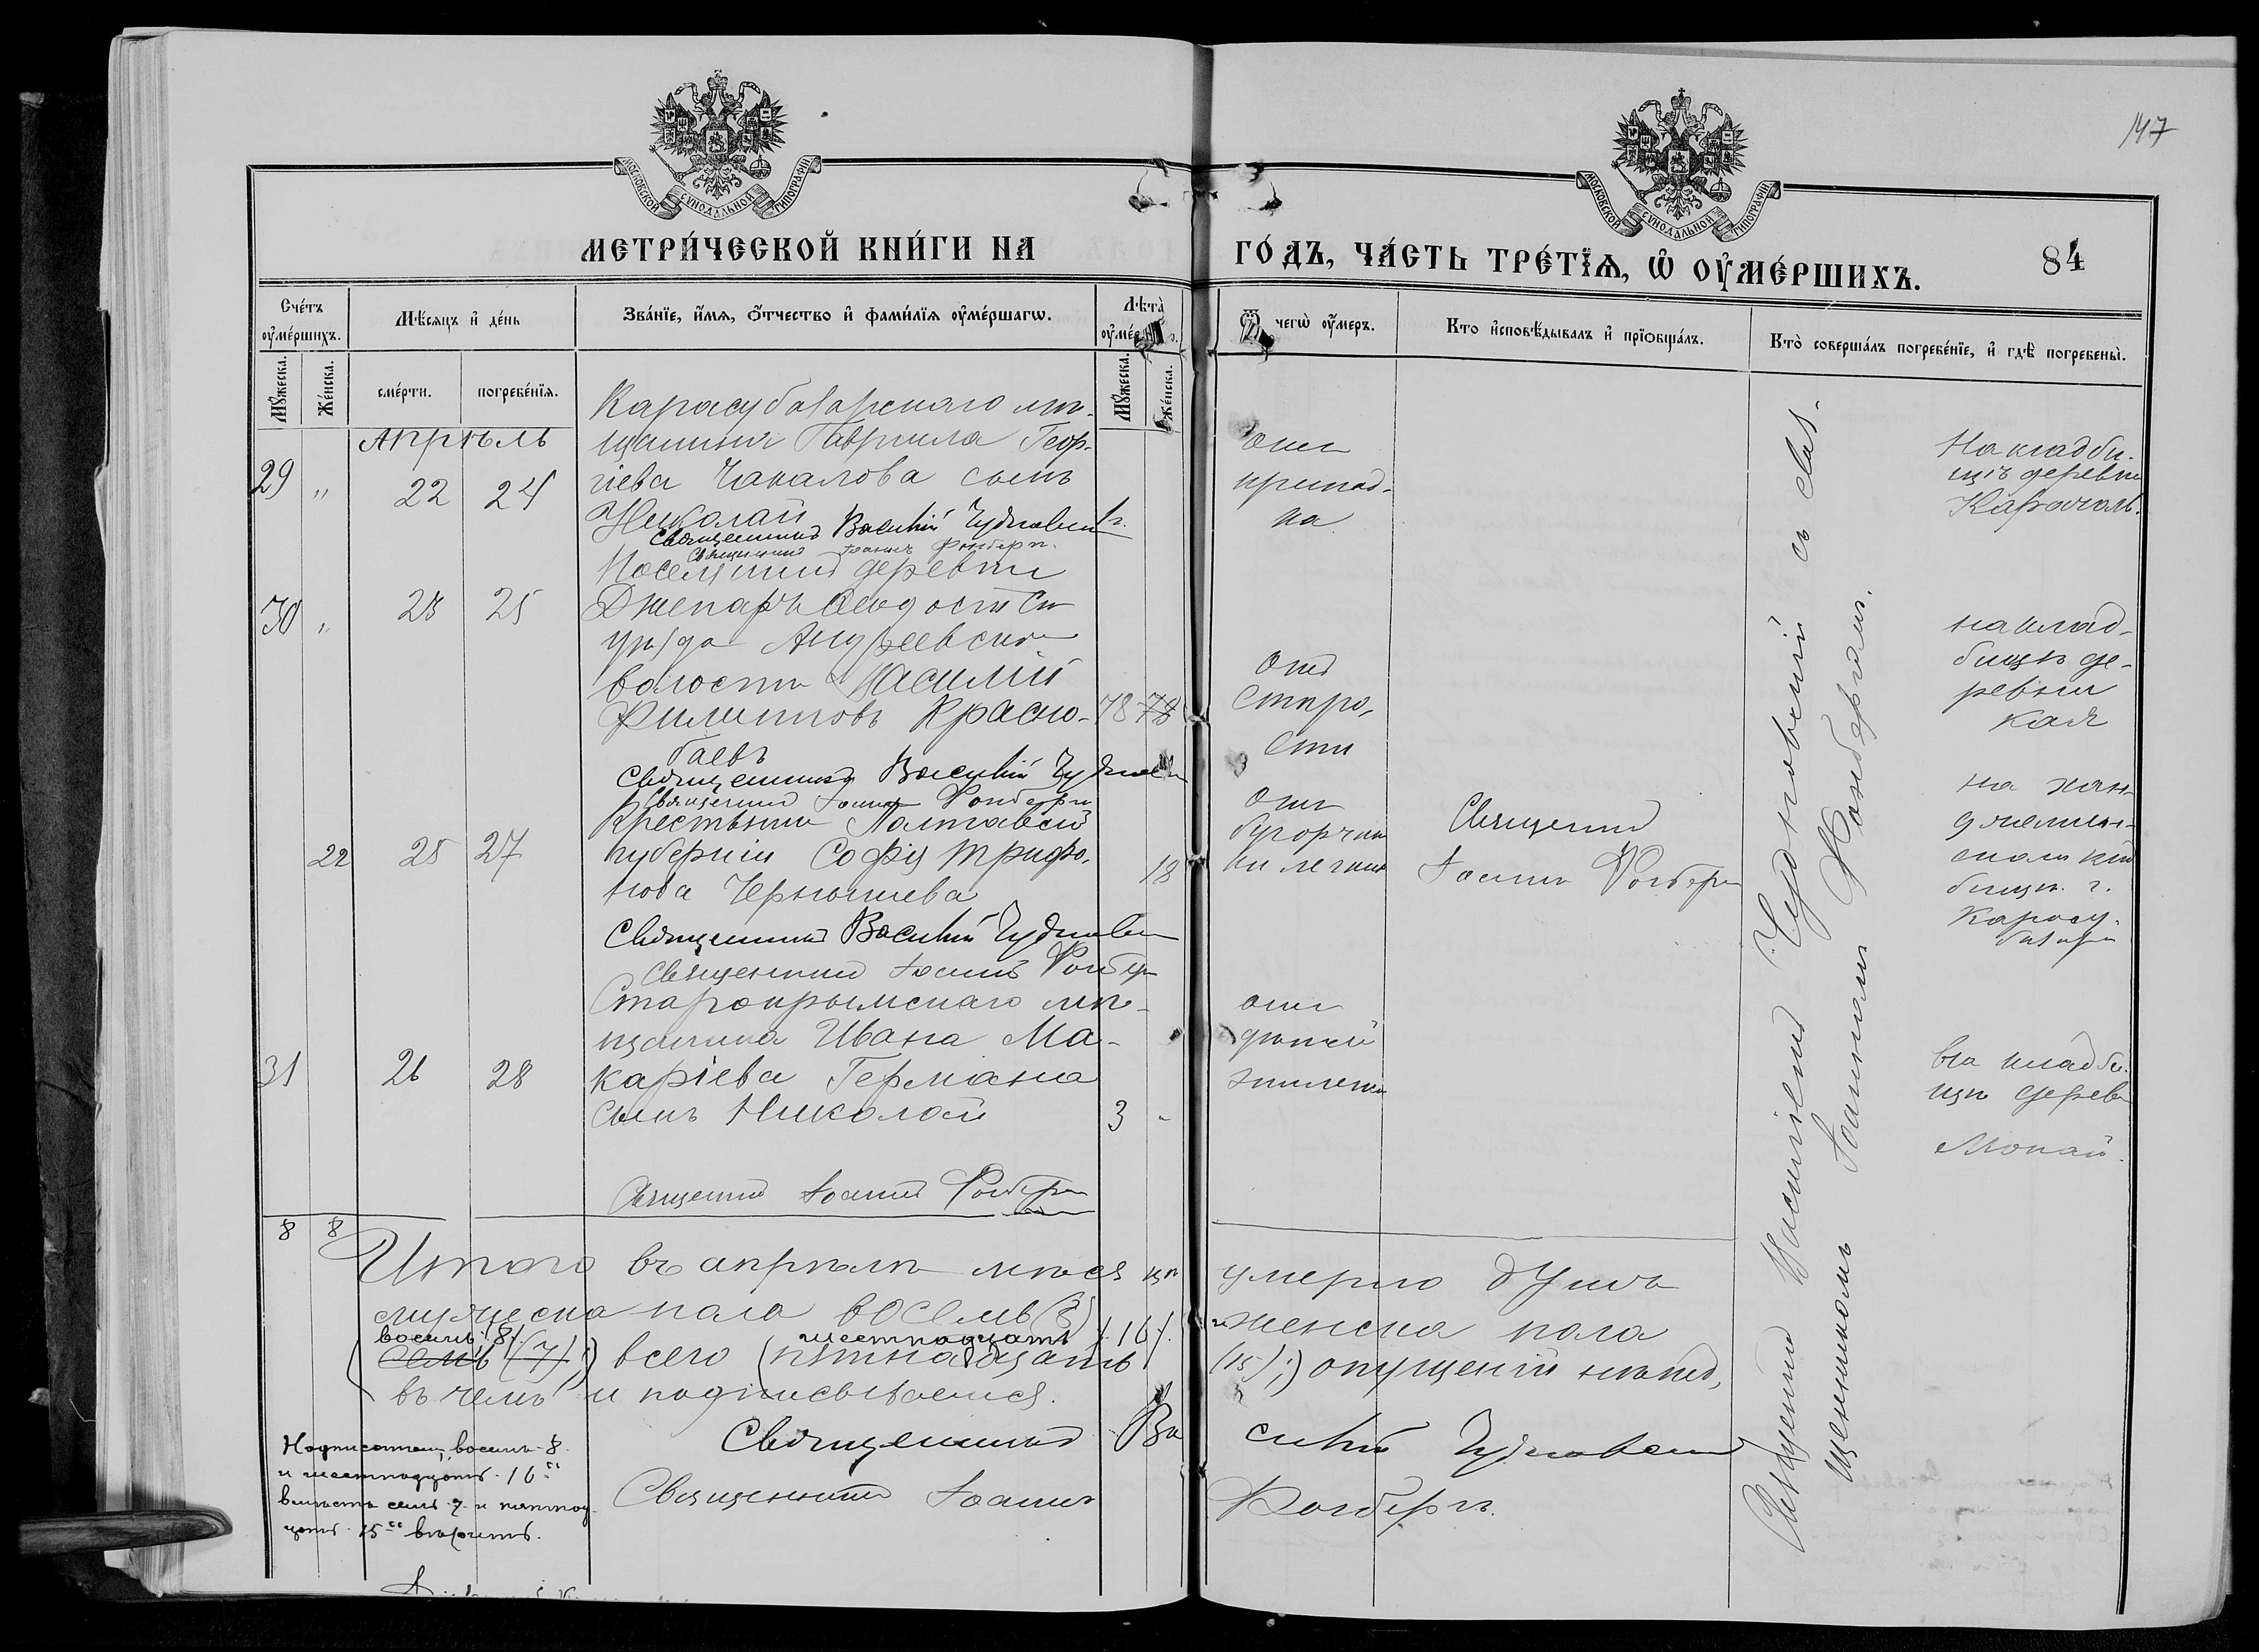 147
МОСКОВСКОЙ СѴНОДАЛЬНОЙ ТИПОГРАФІИ
МОСКОВСКОЙ СѴНОДАЛЬНОЙ ТИПОГРАФІИ
МЕТРИ́ЧЕСКОЙ КНИ́ГИ НА ГО́ДЪ, ЧА́СТЬ ТРЕ́ТЇѦ, Ѿ ОУ҆МЕ́РШИХЪ. 84
Сче́тъ оу҆ме́ршихъ.
Мꙋ́жеска.
Же́нска.
Мѣ́сѧцъ и҆ де́нь
сме́рти.
погребе́нїѧ.
Зва́нїе, и҆́мѧ, ѻ҆́тчество и҆ фами́лїѧ оу҆ме́ршагѡ.
Лѣ́та
Мꙋ́жеска.
Же́нска.
Ѿ чегѡ̀ оу҆́меръ.
Кто̀ и҆сповѣ́дывалъ и҆ прїѻбща́лъ.
Кто̀ соверша́лъ погребе́нїе, и҆ гдѣ̀ погребены̀.
Апрѣль
29 " 22 24
Карасубазарскаго мѣ-
щанина Гавриила Геор-
гіева Чакалова сынъ
Николай 1 г.
Священникъ Василій Чудновскій
Священникъ Іоаннъ
отъ
припад-
ка
На кладби-
щѣ деревни
30 " 23 25
Поселянинъ деревни
Ѳеодосійск
уѣзда Андреевской
волости Василій
Филипповъ Красно-
баевъ
78 78
Священникъ Василій Чудновскій
Священникъ Іоаннъ
отъ
старо-
сти
на клад-
бищѣ де-
ревни
22 25 27
Крестьянка Полтавской
губерніи Софія Трифо-
нова Чернышева
18
Священникъ Василій Чудновскій
Священникъ Іоаннъ
отъ
бугорчат
ки легкихъ
Священникъ
Іоаннъ
на
клад
бищѣ г.
Карасу-
базара
31 26 28
Старокрымскаго мѣ-
щанина Ивана Ма-
каріева Германа
сынъ Николай
3 "
Священникъ Іоаннъ
отъ
дѣтской
на кладби-
щѣ деревни
Священникъ Василіемъ Чудновскій съ свя-
щенникомъ Іоанномъ
8 8
Итого въ апрѣлѣ мѣсяцѣ умерло душъ
мужеска пола восемь (8) и женска пола
восемь 8/. шестнадцать /.16/.
(семь (7)) всего (пятнадцать (15);) опущеній нѣтъ,
въ чемъ и подписываемся.
Священникъ Василій Чудновскій
Священникъ Іоаннъ
Надписанному восемь 8
и шестнадцать 16
вмѣсто семь 7 и пятнад-
цать 15 вѣрить.